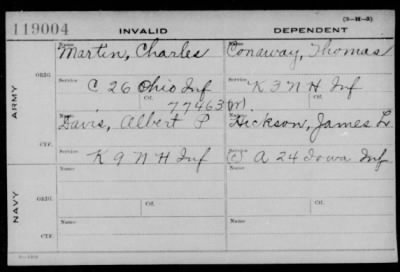 (3-H-3)
119004 INVALID DEPENDENT
ARMY
ORIG.
Name Martin, Charles Name Conaway, Thomas
Service C 26 Ohio Inf Service K 3 N H Inf
77463
CTF.
Davis, Albert P Hickson, James L
Service K 9 N H Inf Service A 24 Iowa Inf
NAVY
ORIG.
Name Name
Ctf. Ctf.
CTF.
Name Name